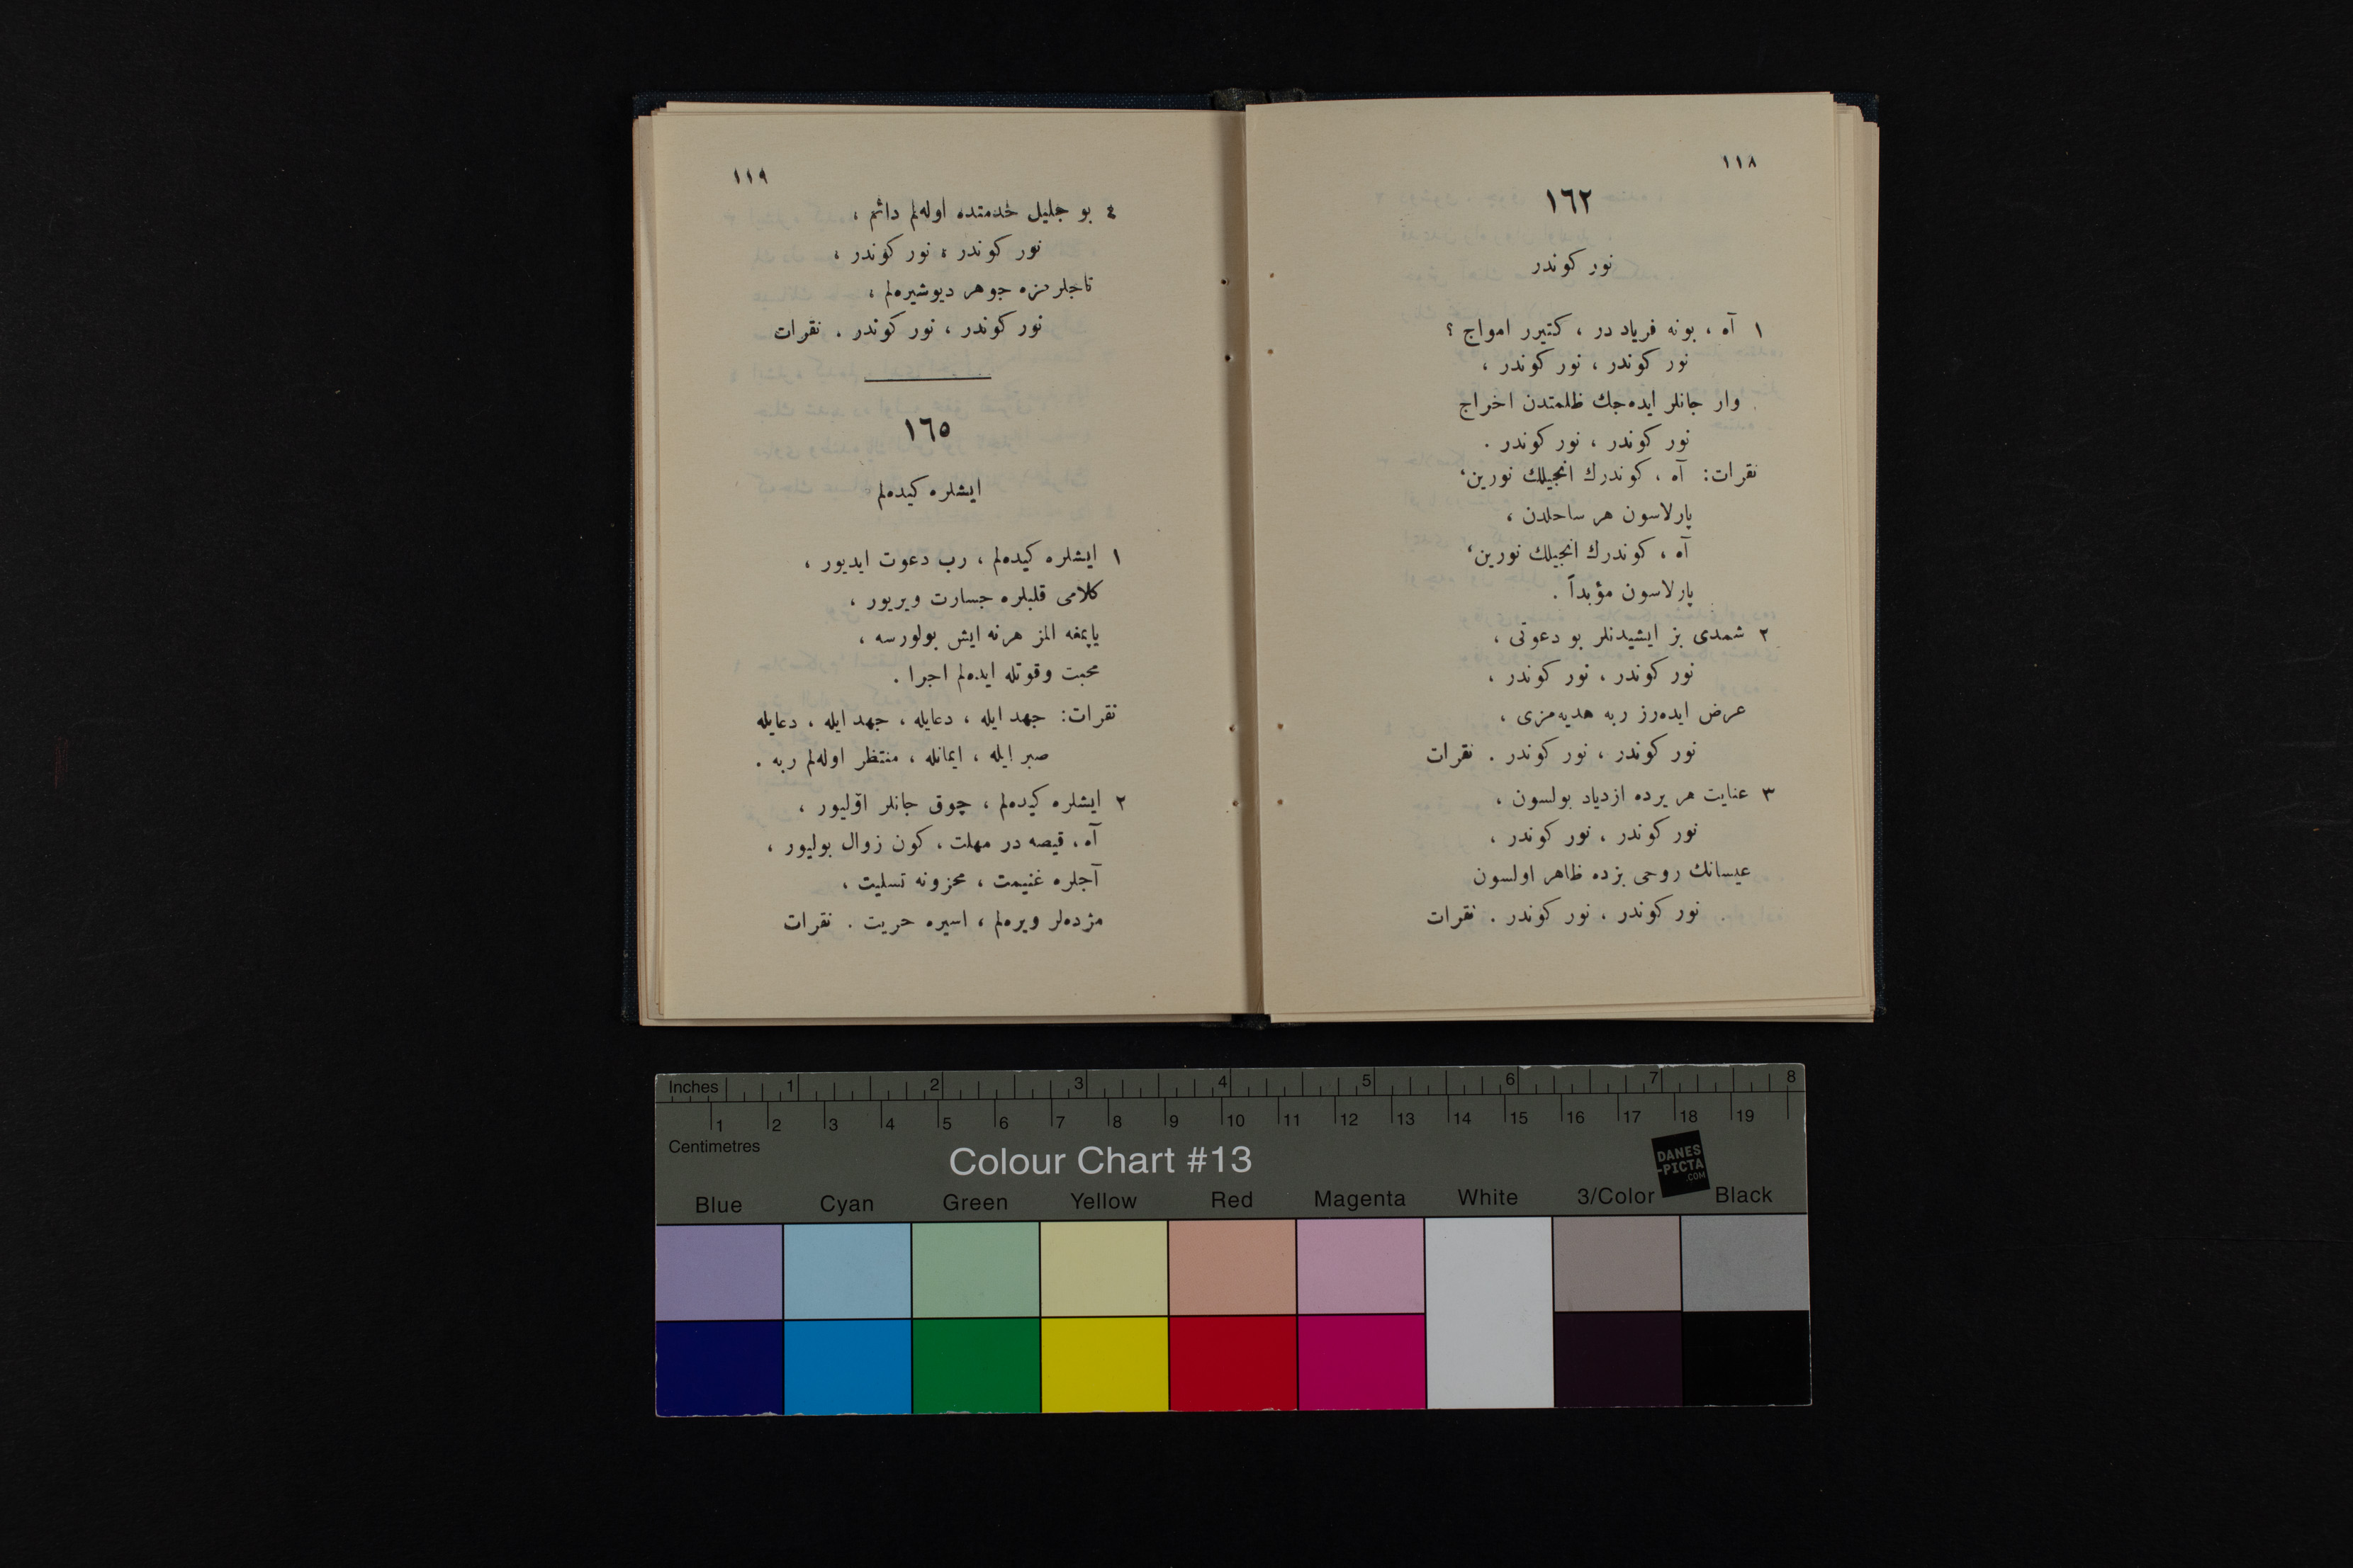 ١١٨
١٦٢
نور كوندر
١ آه ، بونه فرياد در ، كتيرر امواج ؟
نور كوندر ، نور كوندر ،
وار جانلر ايده‌جك ظلمتدن اخراج
نور كوندر ، نور كوندر .
نقرات: آه ، كوندرك انجيلك نورين،
پارلاسون هر ساحلدن ،
آه ، كوندرك انجيلك نورين،
پارلاسون مؤبداً .
٢ شمدى بز ايشيدنلر بو دعوتى ،
نور كوندر ، نور كوندر ،
عرض ايده‌رز ربه هديه‌مزى ،
نور كوندر ، نور كوندر . نقرات
٣ عنايت هر يرده ازدياد بولسون ،
نور كوندر ، نور كوندر ،
عيسانك روحى بزده ظاهر اولسون
نور كوندر ، نور كوندر . نقرات
١١٩
٤ بو جليل خدمتده اوله‌لم دائم ،
نور كوندر ، نور كوندر ،
تاجلرمزه جوهر ديوشيره‌لم ،
نور كوندر ، نور كوندر . نقرات
١٦٥
ايشلره كيده‌لم
١ ايشلره كيده‌لم ، رب دعوت ايديور ،
كلامى قلبلره جسارت ويريور ،
ياپمغه المز هرنه ايش بولورسه ،
محبت وقوتله ايده‌لم اجرا .
نقرات: جهد ايله ، دعايله ، جهد ايله ، دعايله
صبر ايله ، ايمانله ، منتظر اوله‌لم ربه .
٢ ايشلره كيده‌لم ، چوق جانلر اۤوليور ،
آه ، قيصه در مهلت ، كون زوال بوليور ،
آجلره غنيمت ، محزونه تسليت ،
مژده‌لر ويره‌لم ، اسيره حريت . نقرات
Inches 1 2 3 4 5 6 7 8
1 2 3 4 5 6 7 8 9 10 11 12 13 14 15 16 17 18 19
Centimetres
Colour Chart #13
DANES
-PICTA
.COM
Blue Cyan Green Yellow Red Magenta White 3/Color Black